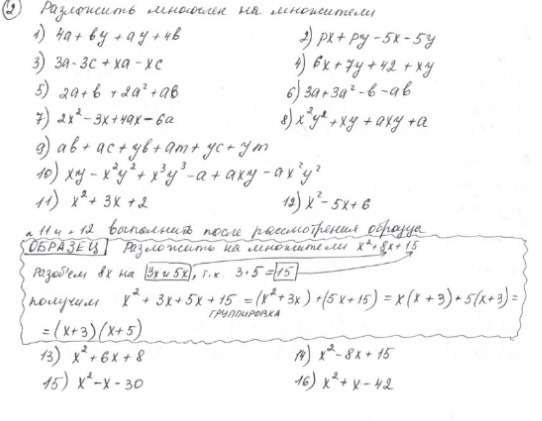 2 Разложить многочлен на множители
1) 4a + by + ay + 4b 2) px + py - 5x - 5y
3) 3a - 3c + xa - xc 4) 6x + 7y + 42 + xy
5) 2a + b + 2a² + ab 6) 3a + 3a² - b - ab
7) 2x² - 3x + 4ax - 6a 8) x²y² + xy + axy + a
9) ab + ac + yb + am + yc + ym
10) xy - x²y² + x³y³ - a + axy - ax²y²
11) x² + 3x + 2 12) x² - 5x + 6
11 и 12 выполнить после рассмотрения образца
ОБРАЗЕЦ Разложить на множители x² + 8x + 15
Разобьём 8x на 3x и 5x, т.к. 3·5 = 15
получим x² + 3x + 5x + 15 = (x² + 3x) + (5x + 15) = x(x + 3) + 5(x+3) =
ГРУППИРОВКА
= (x+3)(x+5)
13) x² + 6x + 8 14) x² - 8x + 15
15) x² - x - 30 16) x² + x - 42